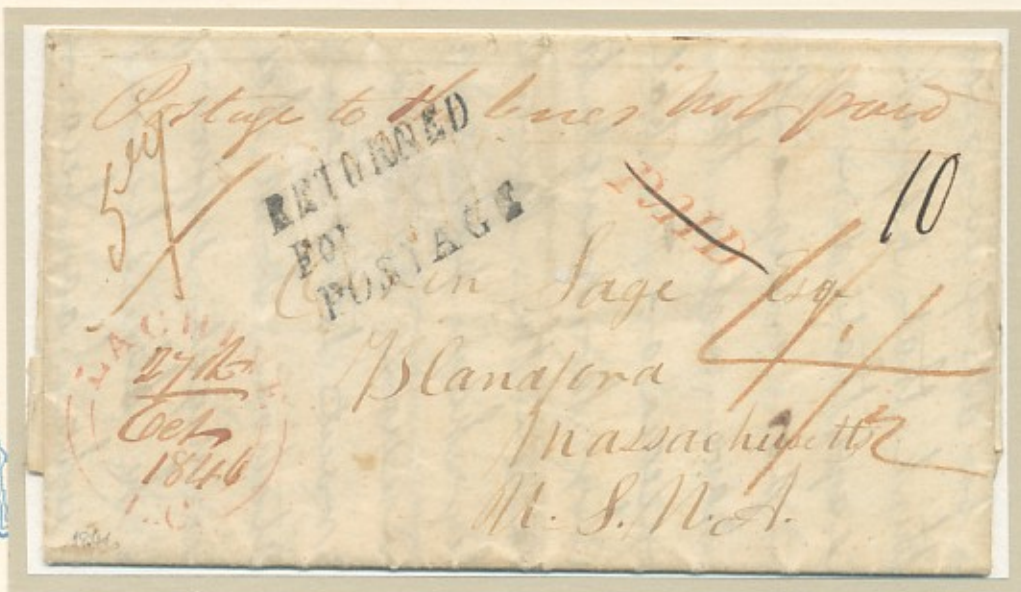 Postage to the lines not paid
RETURNED
FOR
POSTAGE
PAID
10
Sage Esqr
Blandford
Massachusetts
U. S. N. A.
LACHUTE
27th
Oct
1846
L.C